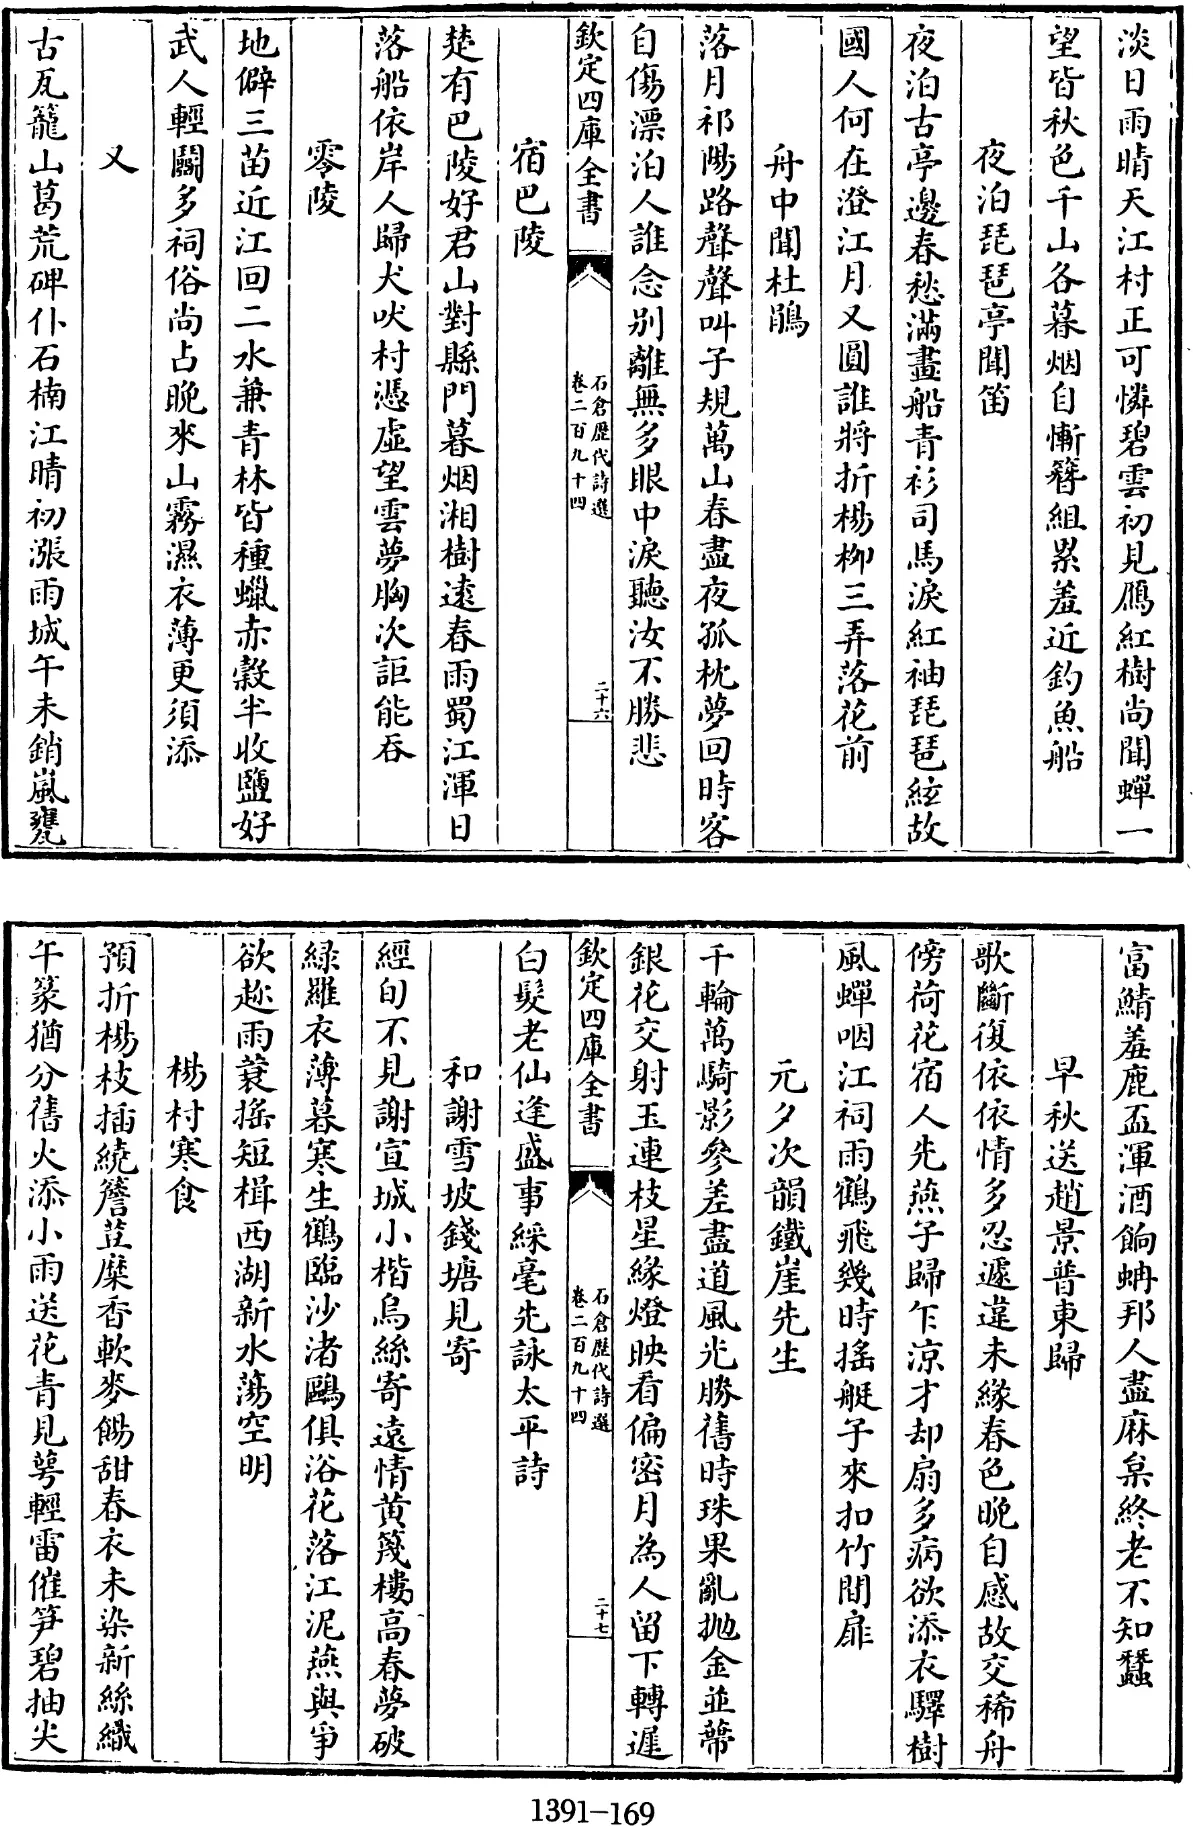 淡日雨晴天江村正可憐碧雲初見鴈紅樹尚聞蟬一
望皆秋色千山各暮烟自慚簪組累羞近釣魚船
夜泊琵琶亭聞笛
夜泊古亭邊春愁滿畫船青衫司馬淚紅袖琵琶絃故
國人何在澄江月又圓誰將折楊柳三弄落花前
舟中聞杜鵑
落月祁陽路聲聲叫子規萬山春盡夜孤枕夢回時客
自傷漂泊人誰念別離無多眼中淚聽汝不勝悲
欽定四庫全書
石倉歷代詩選
卷二百九十四
二十六
宿巴陵
楚有巴陵好君山對縣門暮烟湘樹遠春雨蜀江渾日
落船依岸人歸犬吠村憑虛望雲夢胸次詎能吞
零陵
地僻三苗近江回二水兼青林皆種蠟赤穀半收鹽好
武人輕鬬多祠俗尚占晚來山霧濕衣薄更須添
又
古瓦籠山葛荒碑仆石楠江晴初漲雨城午未銷嵐甕
富鯖羞鹿盃渾酒餉蚺邦人盡麻枲終老不知蠶
早秋送趙景普東歸
歌斷復依依情多忍遽違未緣春色晚自感故交稀舟
傍荷花宿人先燕子歸乍涼才却扇多病欲添衣驛樹
風蟬咽江祠雨鶴飛幾時搖艇子來扣竹間扉
元夕次韻鐵崖先生
千輪萬騎影參差盡道風光勝舊時珠果亂拋金並蔕
銀花交射玉連枝星緣燈映看偏密月為人留下轉遲
欽定四庫全書
石倉歷代詩選
卷二百九十四
二十七
白髮老仙逢盛事綵毫先詠太平詩
和謝雪坡錢塘見寄
經旬不見謝宣城小楷烏絲寄遠情黃篾樓高春夢破
緑羅衣薄暮寒生鶴臨沙渚鷗俱浴花落江泥燕與爭
欲趂雨蓑搖短楫西湖新水蕩空明
楊村寒食
預折楊枝插繞簷荳糜香軟麥餳甜春衣未染新絲織
午篆猶分舊火添小雨送花青見萼輕雷催笋碧抽尖
1391-169